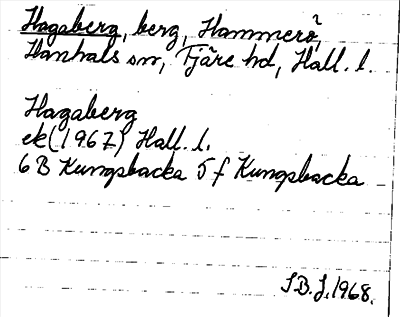 Hagaberg, berg, Hammerö,?
Hanhals sn, Fjäre hd, Hall. l.
Hagaberg
ek (1967) Hall. l.
6 B Kungsbacka 5 f Kungsbacka
S.B.J. 1968.